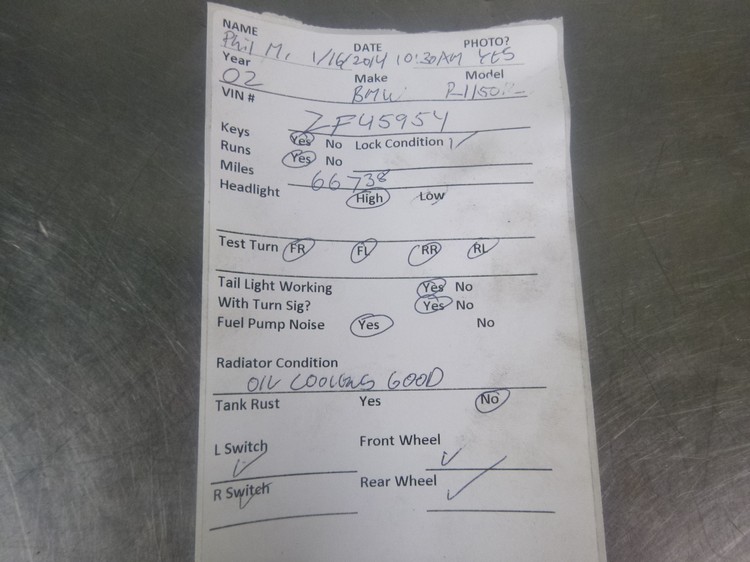 NAME DATE PHOTO?
Phil M. 1/16/2014 10:30AM YES
Year Make Model
02 BMW
VIN #
ZF45954
Keys Yes No Lock Condition
Runs Yes No
Miles 66738
Headlight High Low
Test Turn FR FL RR RL
Tail Light Working Yes No
With Turn Sig? Yes No
Fuel Pump Noise Yes No
Radiator Condition
OIL COOLERS GOOD
Tank Rust Yes No
L Switch Front Wheel
R Switch Rear Wheel